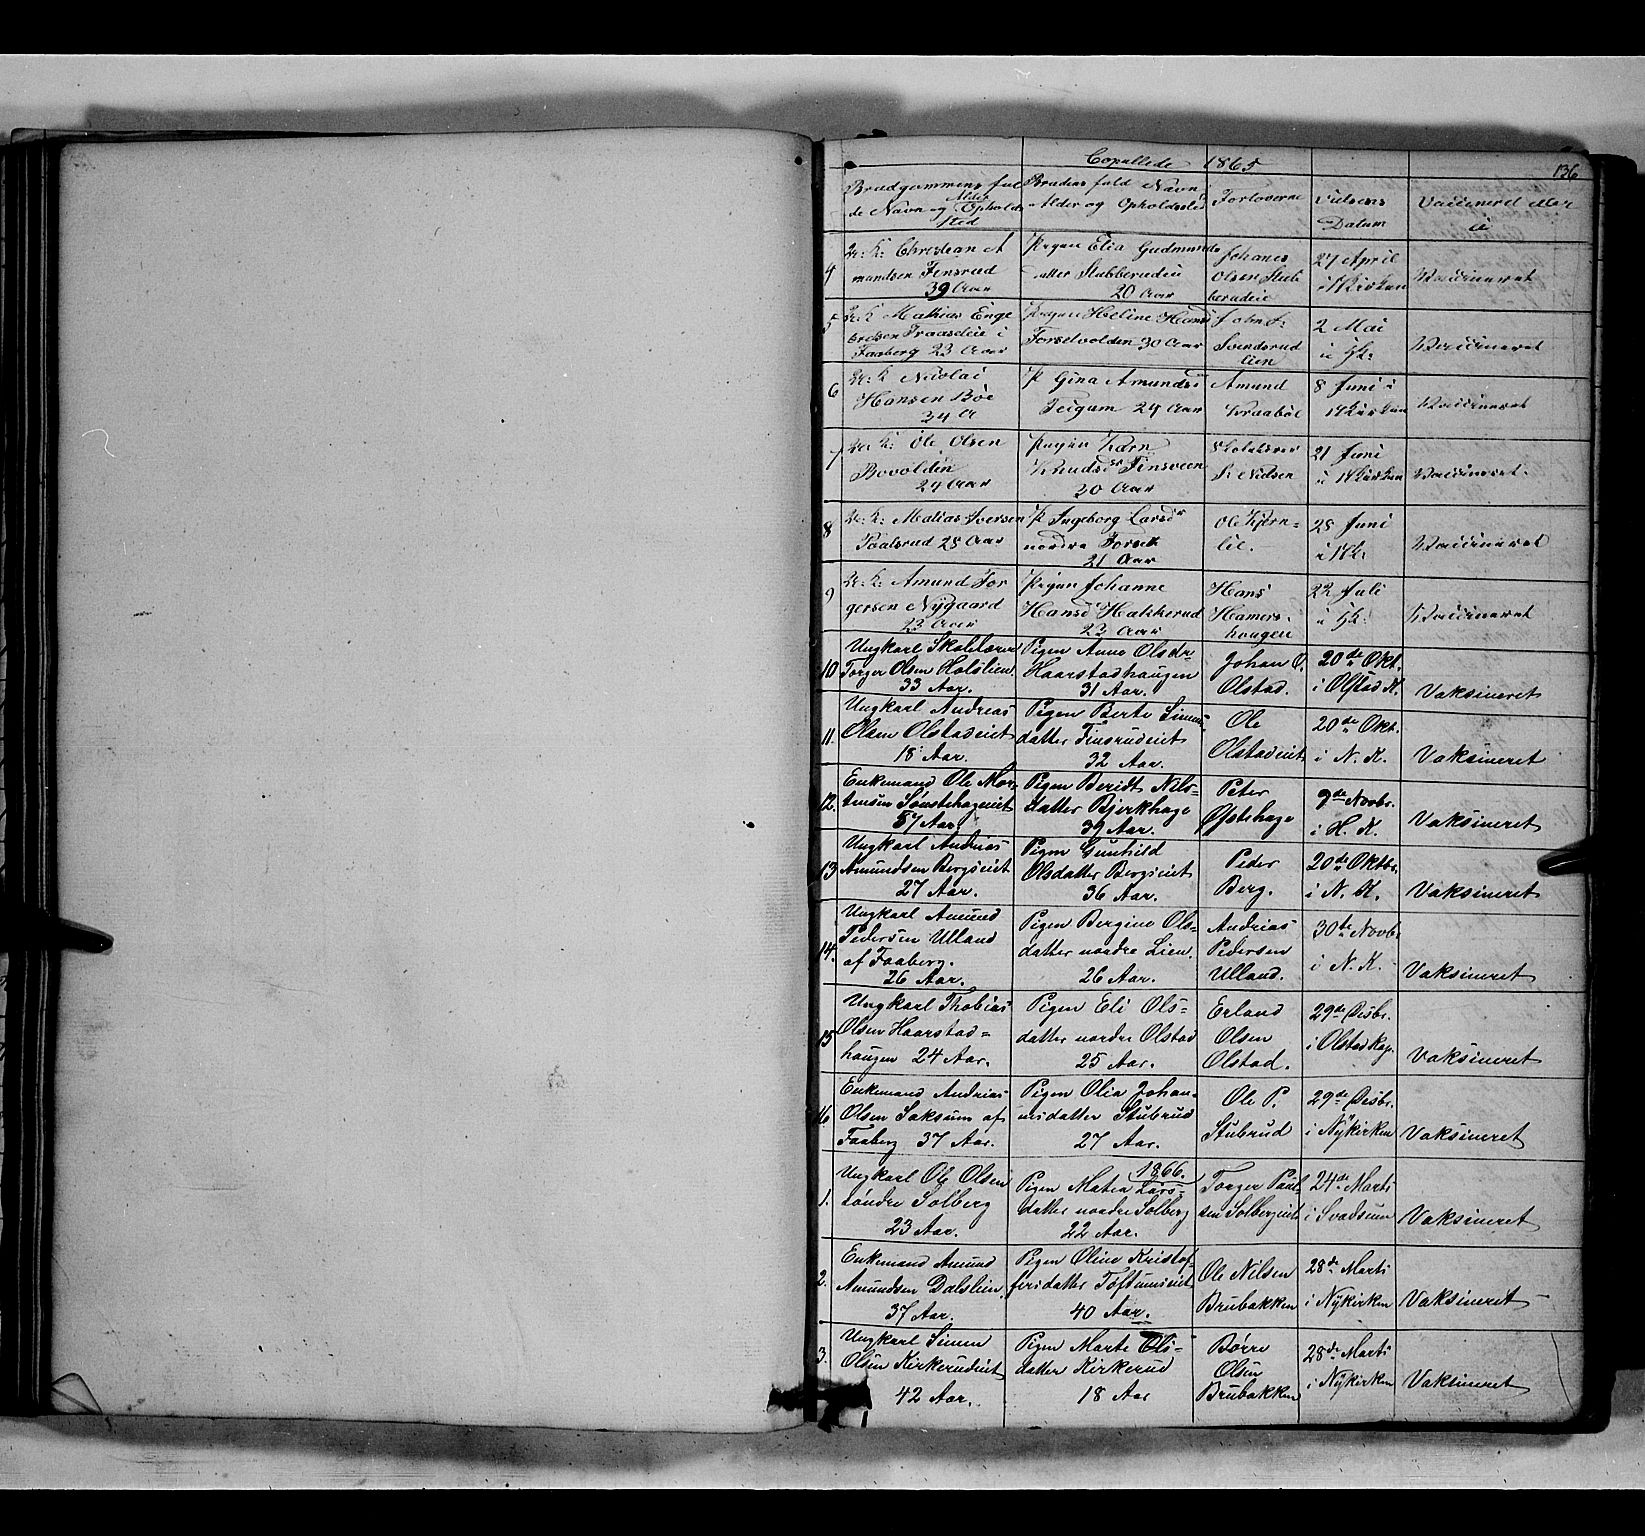 Copullede 1865
136
Brudgommens ful
de Navn og Alder Ophold
sted
Brudens fuld Navn
Alder og Opholdssted
Forloverne
Vielsens
Datum
Vaccineret eller
ei
4
U: K: Christian A
mundsen Finsrud
39 Aar
Pigen Elia Gudmunds
datter Stubberudei
20 Aar
Johanes
Olsen Stub
berudeie
27 April
i NKirken
Vaccineret
5
U: K Mathias Enge
bretsen Fraasdeie i
Faaberg 23 Aar
Pigen Heline Hansd
Forsetvolden 30 Aar
John S:
Svendsrud
lien
2 Mai
i HK:
Vaccineret
6
U: K Nicolai
Hansen Böe
34 A
P Gina Amundsd
Teigum 24 Aar
Amund
Kraaböl
8 Juni i
NKirken
Vaccineret
7
U: K: Ole Olsen
Bovolden
24 Aar
Pigen Karn
Knudsdr Finsveen
20 Aar
Skolelærer
S: Nilsen
21 Juni
i NKirken
Vaccineret.
8
U: K: Matias Iversen
Paalsrud 25 Aar
P Ingeborg Larsdr
nordre Forset
21 Aar
Ole Kjörn=
lie.
25 Juni
i NK:
Vaccineret
9
U: K: Amund Tor
gersen Nygaard
23 Aar
Pigen Johanne
Hansd Hakkerud
23 Aar
Hans
Hamers-
hougen
22 Juli
i HK:
Vaccineret
10
Ungkarl Skolelærer
Torger Olsen Holslien.
33 Aar.
Pigen Anne Olsdr
Haarstadhaugen
31 Aar.
Johan O.
Olstad.
20de Okt.
i Olstad K.
Vaksineret
11.
Ungkarl Andreas
Olsen Olstadeiet
18 Aar.
Pigen Berte Simens
datter Finsrudeiet
32 Aar.
Ole
Olstadeiet
20de Okt.
i N. K.
Vaksineret
12.
Enkemand Ole Mor-
tensen Sønstehageeiet
57 Aar.
Pigen Beridt Nils=
datter Bjerkhage
39 Aar.
Peter
Østehage
9de Novbr.
i H. K.
Vaksineret
13
Ungkarl Andreas
Amundsen Bergseiet
27 Aar.
Pigen Gunhild
Olsdatter Bergseiet
36 Aar.
Peder
Berg.
20de Oktbr.
i N. K.
Vaksineret
14.
Ungkarl Amund
Pedersen Ulland
af Faaberg.
26 Aar.
Pigen Bergine Ols=
datter nordre Lien.
26 Aar.
Andreas
Pedersen
Ulland.
30te Novbr
i N. K.
Vaksineret
15
Ungkarl Thobias
Olsen Haarstad=
haugen 24 Aar.
Pigen Eli Ols=
datter nordre Olstad
25 Aar.
Erland
Olsen
Olstad.
29de Desbr.
i Olstad Kap.
Vaksineret
16.
Enkemand Andreas
Olsen Saksum af
Faaberg 37 Aar.
Pigen Olia Johan-
nesdatter Stubrud
27 Aar.
Ole P.
Stubrud
29de Desbr.
i Nykirken
Vaksineret
1866.
1.
Ungkarl Ole Olsen
Søndre Solberg
23 Aar.
Pigen Matea Lars=
datter nordre Solberg
22 Aar.
Torger Paul-
sen Solbergeiet
24de Marts
i Svadsum
Vaksineret
2.
Enkemand Amund
Amundsen Dalslien.
37 Aar.
Pigen Oline Kristof-
fersdatter Toftumseiet
40 Aar.
Ole Nilsen
Brubakken
28de Marts
i Nykirken
Vaksineret
3.
Ungkarl Simen
Olsen Kirkerudeiet
42 Aar.
Pigen Marte Ols=
datter Kirkerud
18 Aar
Børre
Olsen
Brubakken
28de Marts
i Nykirken
Vaksineret